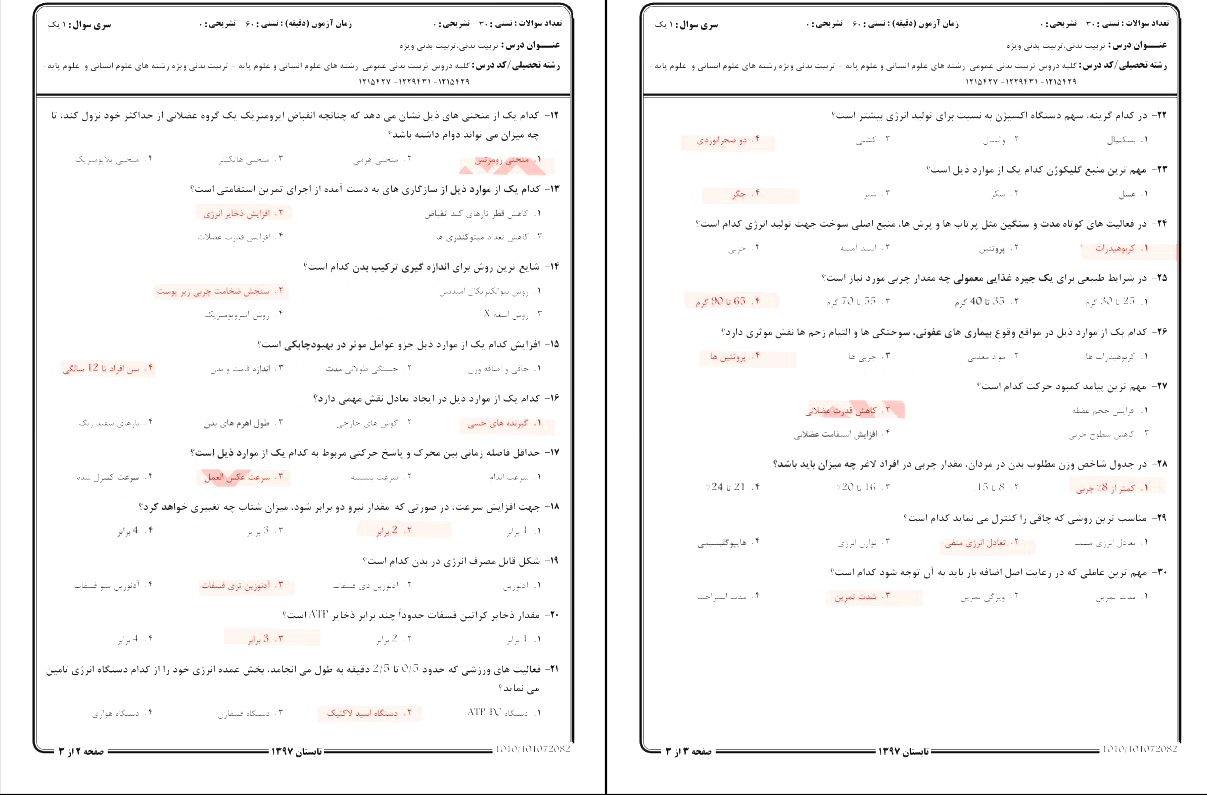 تعداد سوالات : تستی : ۳۰ تشریحی : ۰ زمان آزمون (دقیقه) : تستی : ۶۰ تشریحی : ۰ سری سوال : ۱ یک
عنـــوان درس : تربیت بدنی،تربیت بدنی ویژه
رشته تحصیلی/کد درس : کلیه دروس تربیت بدنی عمومی رشته های علوم انسانی و علوم پایه - تربیت بدنی ویژه رشته های علوم انسانی و علوم پایه -
۱۲۱۵۴۲۹- ۱۲۲۹۴۳۱- ۱۲۱۵۴۲۷
۱۲- کدام یک از منحنی های ذیل نشان می دهد که چنانچه انقباض ایزومتریک یک گروه عضلانی از حداکثر خود نزول کند، تا
چه میزان می تواند دوام داشته باشد؟
۱. منحنی رومرتس ۲. منحنی هرمی ۳. منحنی هانگینز ۴. منحنی پلایومتریک
۱۳- کدام یک از موارد ذیل از سازگاری های به دست آمده از اجرای تمرین استقامتی است؟
۱. کاهش قطر تارهای کند انقباض ۲. افزایش ذخایر انرژی
۳. کاهش تعداد میتوکندری ها ۴. افزایش قدرت عضلات
۱۴- شایع ترین روش برای اندازه گیری ترکیب بدن کدام است؟
۱. روش بیوالکتریکال امپدنس ۲. سنجش ضخامت چربی زیر پوست
۳. روش اشعه X ۴. روش آنتروپومتریک
۱۵- افزایش کدام یک از موارد ذیل جزو عوامل موثر در بهبودچابکی است؟
۱. چاقی و اضافه وزن ۲. خستگی طولانی مدت ۳. اندازه قامت و بدن ۴. سن افراد تا 12 سالگی
۱۶- کدام یک از موارد ذیل در ایجاد تعادل نقش مهمی دارد؟
۱. گیرنده های حسی ۲. گوش های خارجی ۳. طول اهرم های بدن ۴. تارهای سفید رنگ
۱۷- حداقل فاصله زمانی بین محرک و پاسخ حرکتی مربوط به کدام یک از موارد ذیل است؟
۱. سرعت اندام ۲. سرعت بیشینه ۳. سرعت عکس العمل ۴. سرعت کنترل شده
۱۸- جهت افزایش سرعت، در صورتی که مقدار نیرو دو برابر شود، میزان شتاب چه تغییری خواهد کرد؟
۱. 1 برابر ۲. 2 برابر ۳. 3 برابر ۴. 4 برابر
۱۹- شکل قابل مصرف انرژی در بدن کدام است؟
۱. آدنوزین ۲. آدنوزین دی فسفات ۳. آدنوزین تری فسفات ۴. آدنوزین منو فسفات
۲۰- مقدار ذخایر کراتین فسفات حدوداً چند برابر ذخایر ATP است؟
۱. 1 برابر ۲. 2 برابر ۳. 3 برابر ۴. 4 برابر
۲۱- فعالیت های ورزشی که حدود 0/5 تا 2/5 دقیقه به طول می انجامد، بخش عمده انرژی خود را از کدام دستگاه انرژی تامین
می نماید؟
۱. دستگاه ATP-PC ۲. دستگاه اسید لاکتیک ۳. دستگاه فسفاژن ۴. دستگاه هوازی
صفحه ۲ از ۳ تابستان ۱۳۹۷ 1010/101072082
تعداد سوالات : تستی : ۳۰ تشریحی : ۰ زمان آزمون (دقیقه) : تستی : ۶۰ تشریحی : ۰ سری سوال : ۱ یک
عنـــوان درس : تربیت بدنی،تربیت بدنی ویژه
رشته تحصیلی/کد درس : کلیه دروس تربیت بدنی عمومی رشته های علوم انسانی و علوم پایه - تربیت بدنی ویژه رشته های علوم انسانی و علوم پایه -
۱۲۱۵۴۲۹- ۱۲۲۹۴۳۱- ۱۲۱۵۴۲۷
۲۲- در کدام گزینه، سهم دستگاه اکسیژن به نسبت برای تولید انرژی بیشتر است؟
۱. بسکتبال ۲. والیبال ۳. کشتی ۴. دو صحرانوردی
۲۳- مهم ترین منبع گلیکوژن کدام یک از موارد ذیل است؟
۱. عسل ۲. شکر ۳. شیر ۴. جگر
۲۴- در فعالیت های کوتاه مدت و سنگین مثل پرتاب ها و پرش ها، منبع اصلی سوخت جهت تولید انرژی کدام است؟
۱. کربوهیدرات ۲. پروتئین ۳. اسید آمینه ۴. چربی
۲۵- در شرایط طبیعی برای یک جیره غذایی معمولی چه مقدار چربی مورد نیاز است؟
۱. 25 تا 30 گرم ۲. 35 تا 40 گرم ۳. 55 تا 70 گرم ۴. 65 تا 90 گرم
۲۶- کدام یک از موارد ذیل در مواقع وقوع بیماری های عفونی، سوختگی ها و التیام زخم ها نقش موثری دارد؟
۱. کربوهیدرات ها ۲. مواد معدنی ۳. چربی ها ۴. پروتئین ها
۲۷- مهم ترین پیامد کمبود حرکت کدام است؟
۱. افزایش حجم عضله ۲. کاهش قدرت عضلانی
۳. کاهش سطوح چربی ۴. افزایش استقامت عضلانی
۲۸- در جدول شاخص وزن مطلوب بدن در مردان، مقدار چربی در افراد لاغر چه میزان باید باشد؟
۱. کمتر از 8٪ چربی ۲. 8 تا 15٪ ۳. 16 تا 20٪ ۴. 21 تا 24٪
۲۹- مناسب ترین روشی که چاقی را کنترل می نماید کدام است؟
۱. تعادل انرژی مثبت ۲. تعادل انرژی منفی ۳. توازن انرژی ۴. هایپوگلیسیمی
۳۰- مهم ترین عاملی که در رعایت اصل اضافه بار باید به آن توجه شود کدام است؟
۱. مدت تمرین ۲. ویژگی تمرین ۳. شدت تمرین ۴. مدت استراحت
صفحه ۳ از ۳ تابستان ۱۳۹۷ 1010/101072082